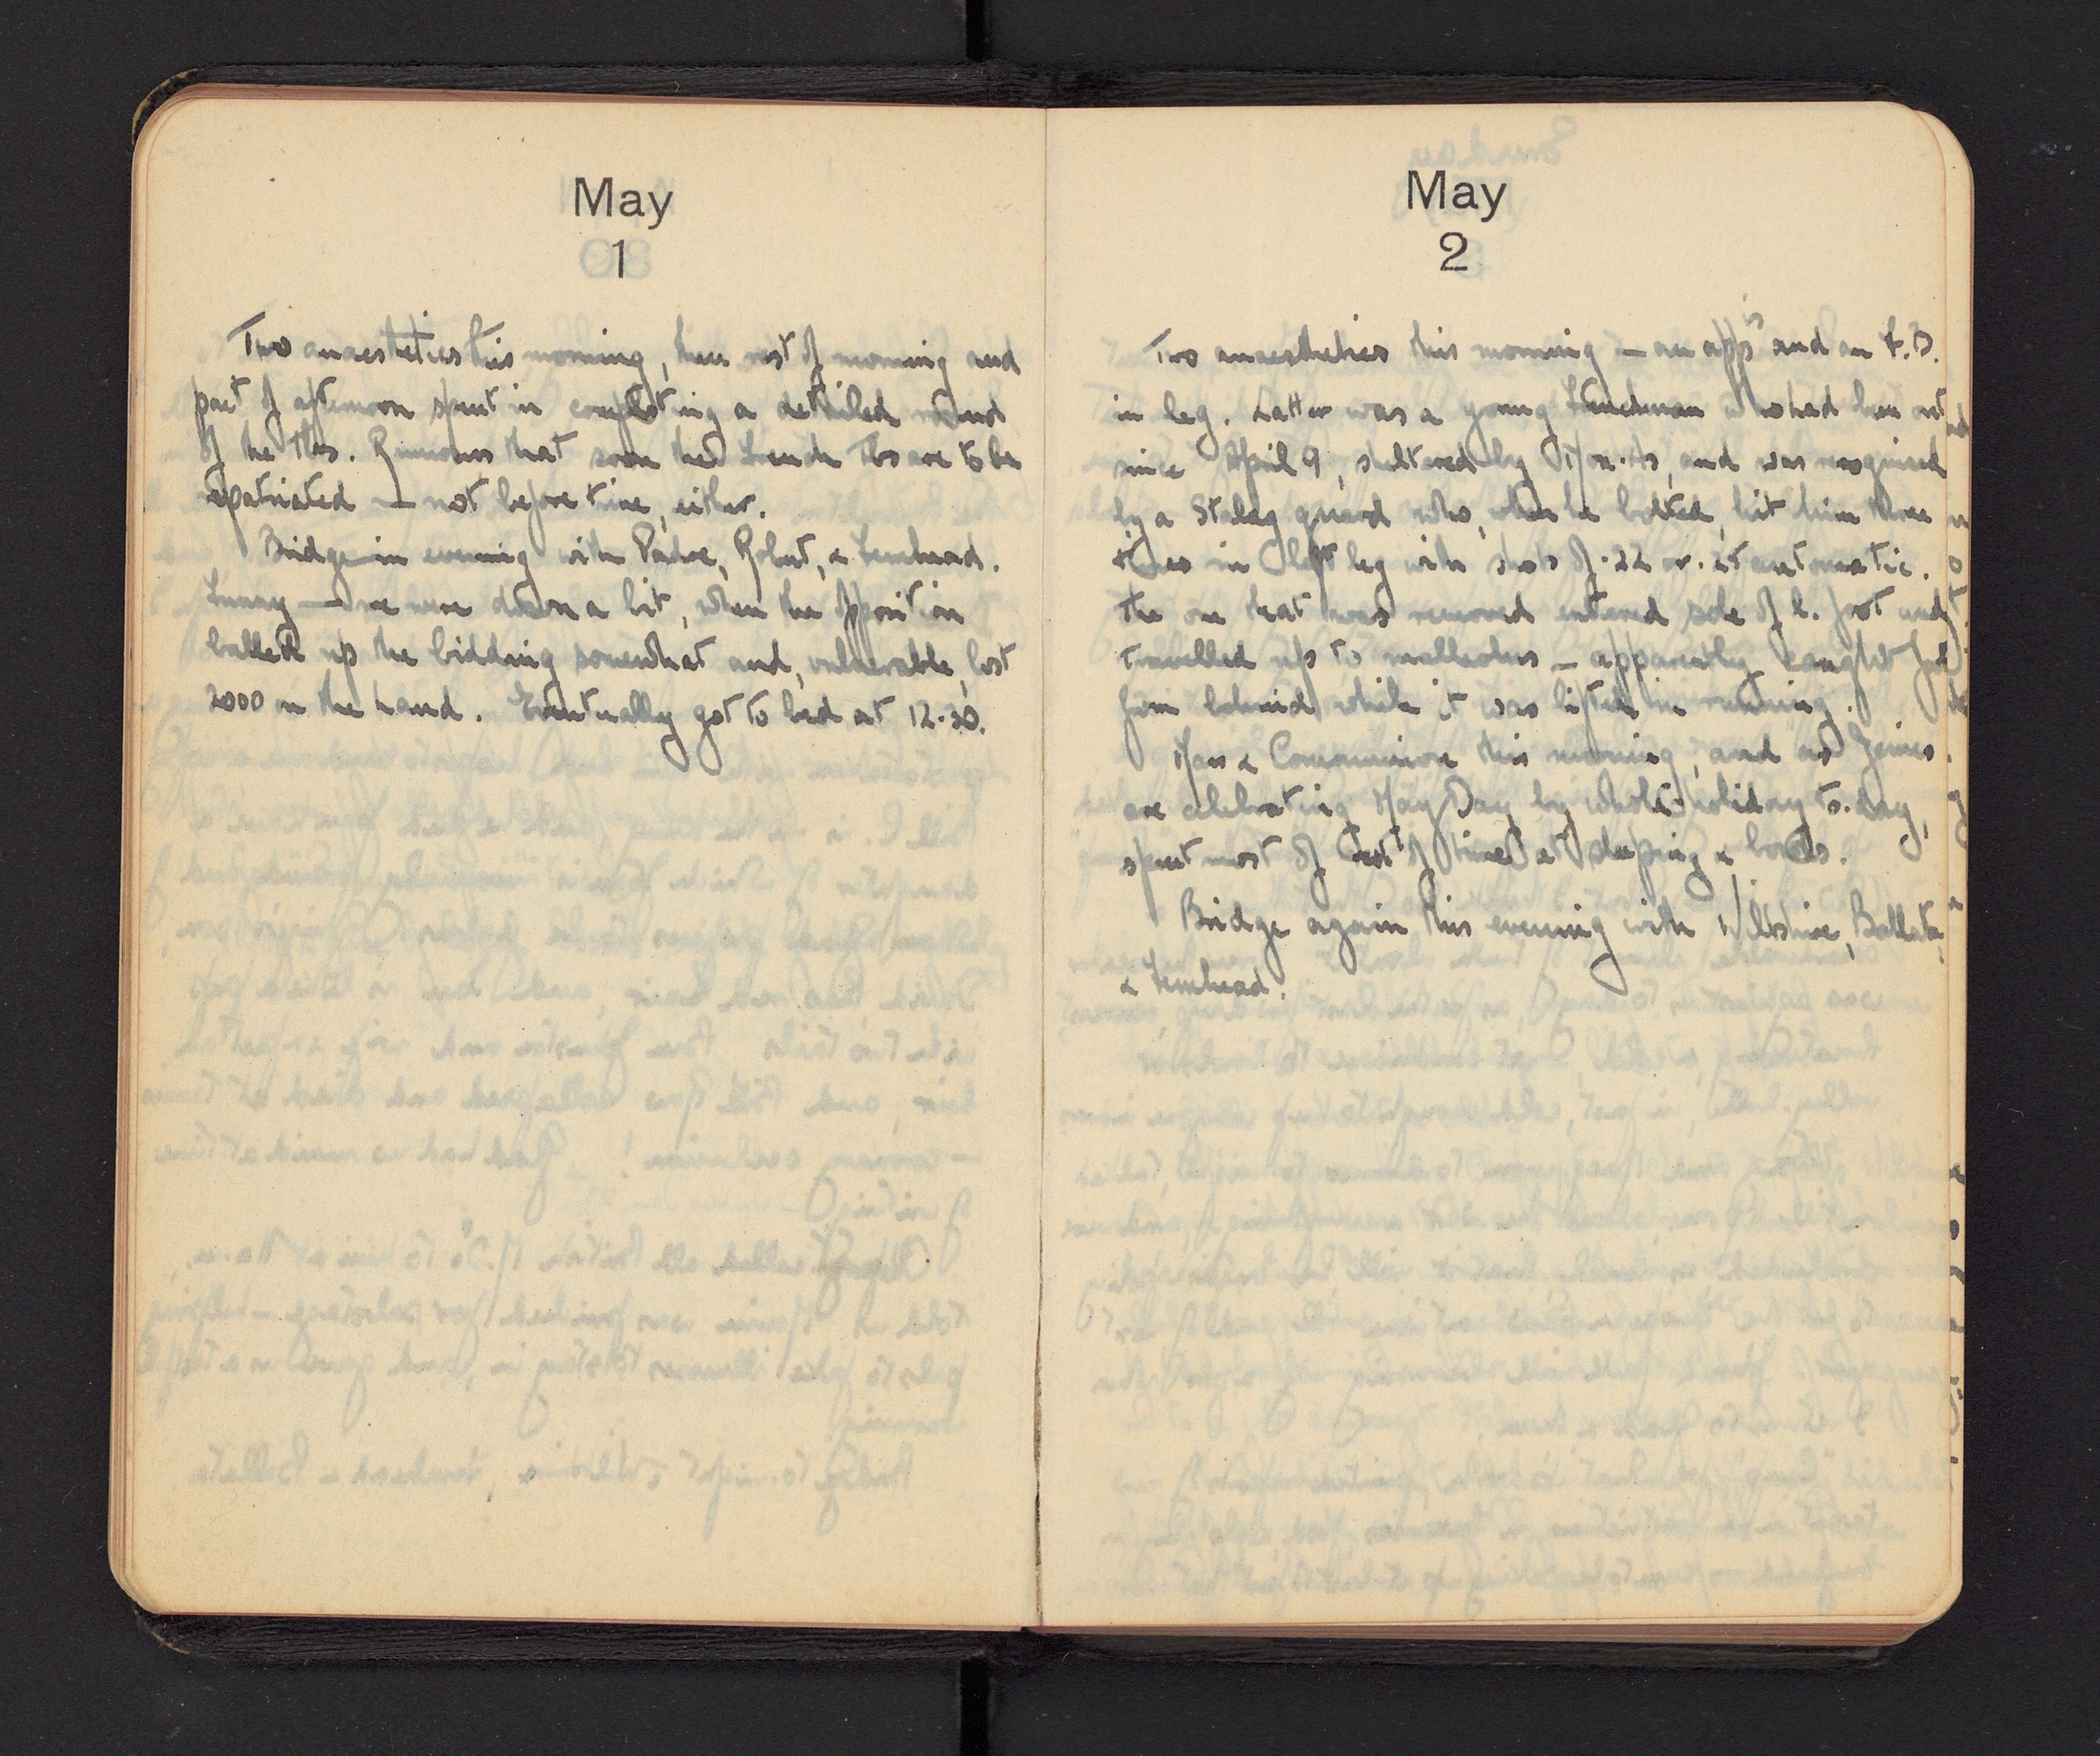 May
1
Two anaesthetics this morning, then rest of morning and
part of afternoon spent in completing a detailed round
of the Tbs. Rumours that soon the French Tbs are to be
repatriated — not before time, either.
Bridge in evening with Padre, Robert, &
Funny — we were down a bit, when the opposition
balled up the bidding somewhat and, vulnerable, lost
2000 on the hand. Eventually got to bed at 12.30.
May
2
Two anaesthetics this morning — an app and an F.B.
in leg. Latter was a young Frenchman who had been out
since April 9, sheltered by and was recognised
by a Stalag guard who, when he bolted, hit him three
times in left leg with shots of .22 or .25 automatic.
The one that was removed entered sole of l. foot and
travelled up to malleolus — apparently caught
from behind while it was lifted in running.
Mass & Communion this morning, and as Jerries
are celebrating May Day by whole-holiday to-day,
spent most of rest of time at sleeping & books.
Bridge again this evening with Wiltshire,
&